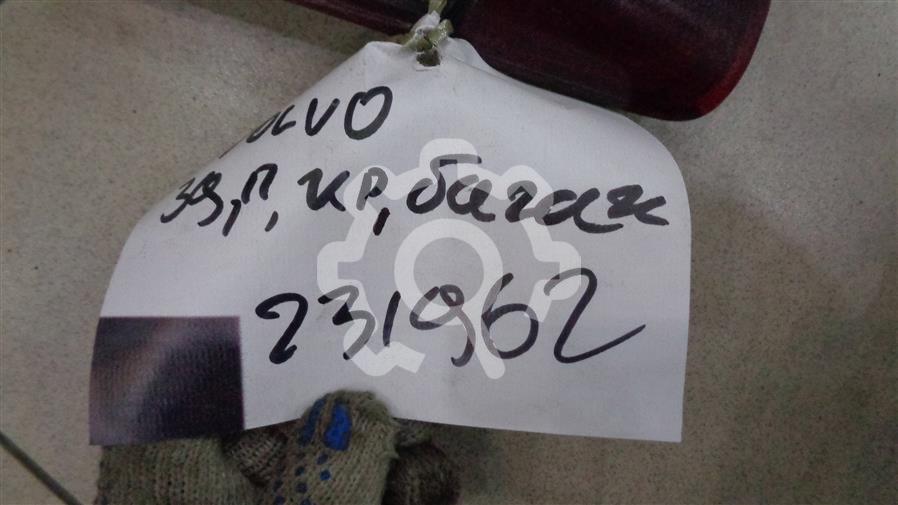 VOLVO
зд, П, кр, багаж
231962